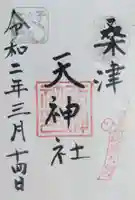 桑津
天神社
令和二年三月十四日